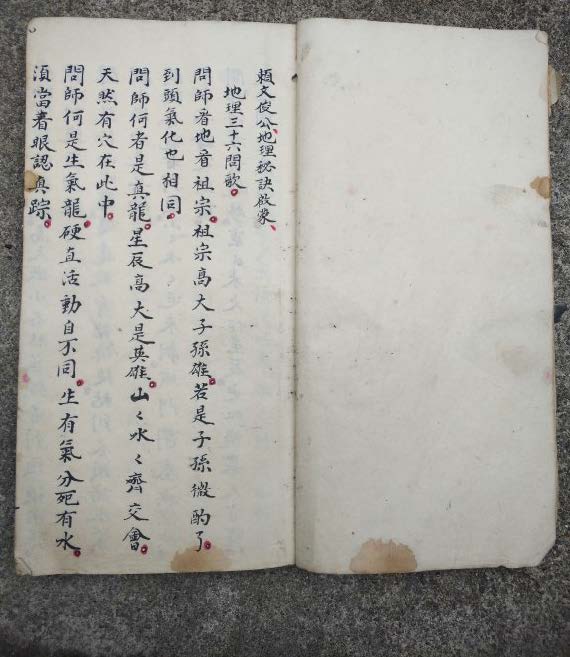 頼文俊公地理秘訣啟蒙
地理三十六問歌
問師看地看祖宗祖宗高大子孫雄若是子孫微酌了
到頭氣化也相同
問師何者是真龍星辰高大是英雄山々水々齊交會
天然有穴在此中
問師何是生氣龍硬直活動自不同生有氣兮死有水
須當着眼認真踪